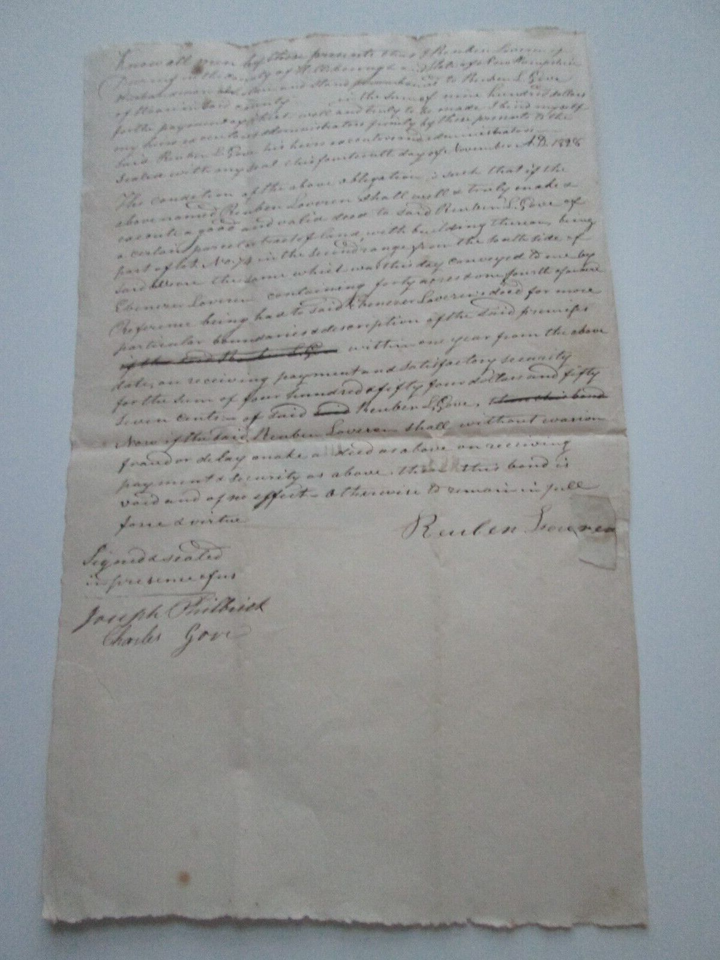 Know all men by these presents that I Reuben Loveren of
Deering in the County of Hillsborough and State of New Hampshire
am holden and stand firmly bound to Reuben L Gove
of Weare in said county in the sum of nine hundred dollars
for the payment of which well and truly to be made I bind myself
my heirs executors & administrators firmly by these presents to the
said Reuben L Gove his heirs executors and administrators
Sealed with my seal this fourteenth day of November A.D. 1828
The condition of the above obligation is such that if the
above named Reuben Loveren shall well & truly make &
execute a good and valid deed to said Reuben L Gove of
a certain parcel or tract of land with buildings thereon being
part of lot No. 74 in the second range from the south side of
said Weare the same which was this day conveyed to me by
Ebenezer Loveren containing forty acres & one fourth of an acre
Reference being had to said Ebenezer Loveren's deed for more
particular boundaries & description of the said premises
of the said Reuben L G within one year from the above
date, on receiving payment and satisfactory security
for the sum of four hundred & fifty four dollars and fifty
seven cents of said said Reuben L Gove, then this bond
Now if the said Reuben Loveren shall without evasion
fraud or delay make a deed as above on receiving
payment & security as above then this bond is
void and of no effect – otherwise to remain in full
force & virtue
Reuben Loveren
Signed & sealed
in presence of us
Joseph Philbrick
Charles Gove